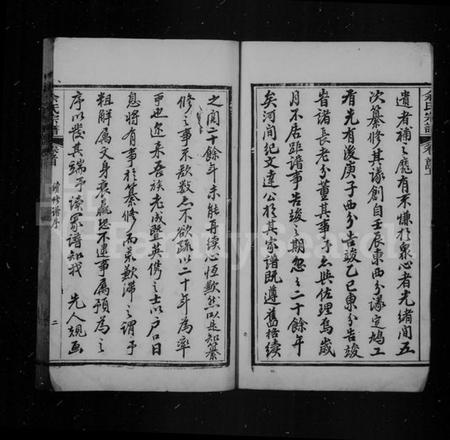 余氏宗譜 卷首
遺者補之靡有不慊於衆心者光緒間五
次纂修其議創自壬辰東西分議定鳩工
者先有後庚子西分告竣乙巳東分告竣
皆諸長老分董其事予亦與佐理焉歲
月不居距譜事告竣之期忽之二十餘年
矣河間紀文達公於其家譜既遵舊搭續
之閱二十餘年未能再續心恆歉然以是知纂
修之事不敢數亦不欲疏以二十年為率
可也迩來吾族老成賢英俊之士以戶口日
息將有事於纂修而先歉滞之謂予
粗解屬文身衰恐不逮事屬預為之
序以發其端予讀家譜知我 先人規畫
氏宗譜 首 續修譜序 二